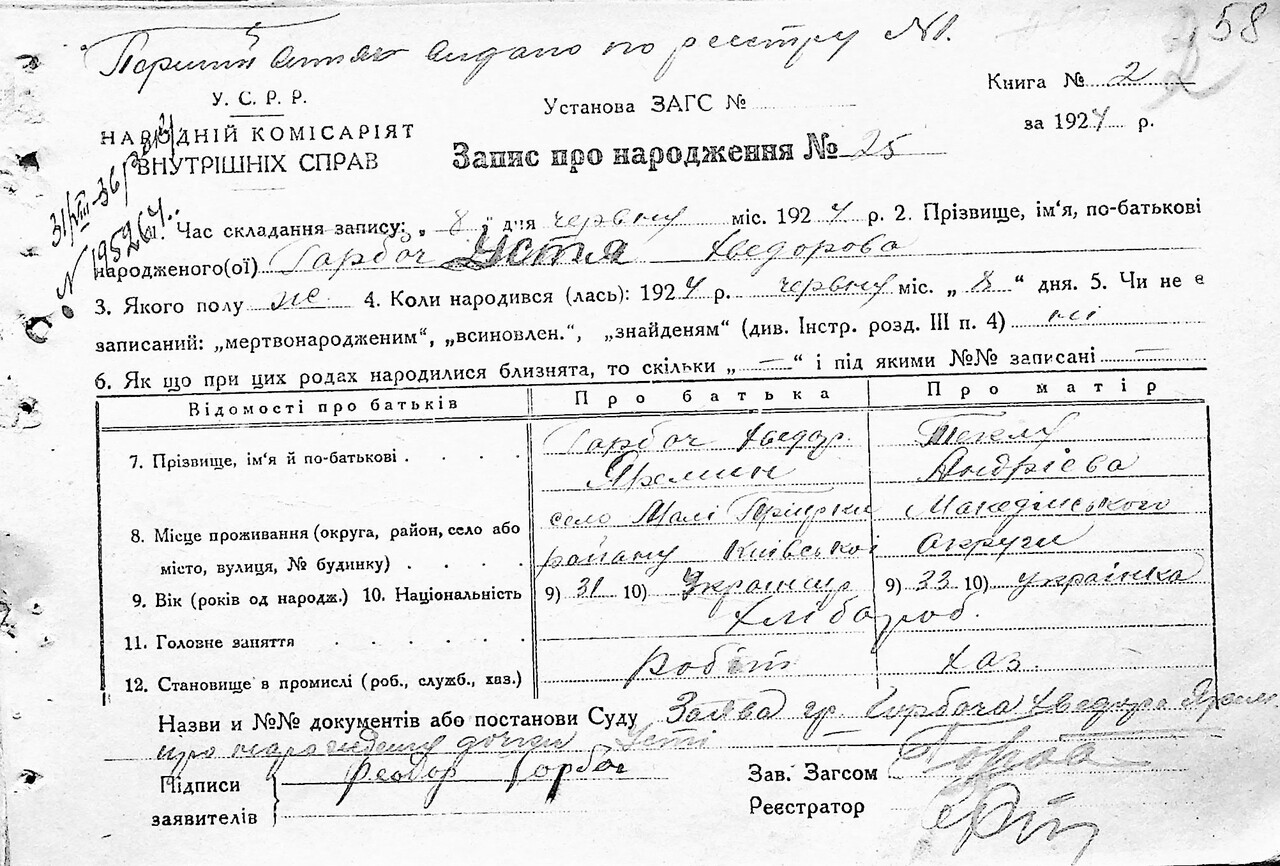 видано по реєстру №1.
58
У. С. Р. Р.
НАРОДНІЙ КОМІСАРІЯТ
ВНУТРІШНІХ СПРАВ
Установа ЗАГС №
Книга № 2
за 1924 р.
Запис про народження № 25
31/VIII-36
1. Час складання запису: „ 8 " дня червня міс. 1924 р. 2. Прізвище, ім'я, по-батькові
народженого(ої) Гарбач Устя Хведорова
3. Якого полу жс 4. Коли народився (лась): 1924 р. червня міс. „ 8 “ дня. 5. Чи не є
записаний: „мертвонародженим“, „всиновлен.“, „знайденям“ (див. Інстр. розд. III п. 4) ні
6. Як що при цих родах народилися близнята, то скільки „ — “ і під якими №№ записані —
Відомості про батьків Про батька Про матір
7. Прізвище, ім'я й по-батькові . . . .
Гарбач Хведор Теклу
Яремин Андрієва
8. Місце проживання (округа, район, село або
місто, вулиця, № будинку) . . . .
село Малі
району Київської округи
9. Вік (років од народж.) 10. Національність 9) 31 10) Українец 9) 33 10) українка
11. Головне заняття . . . . . хлібороб.
12. Становище в промислі (роб., служб., хаз.) робіт хаз.
Назви и №№ документів або постанови Суду Заява гр. Гарбача Хведора Ярем
про народження дочки Усті
Підписи
заявителів
Феодор Горбач
Зав. Загсом
Реєстратор